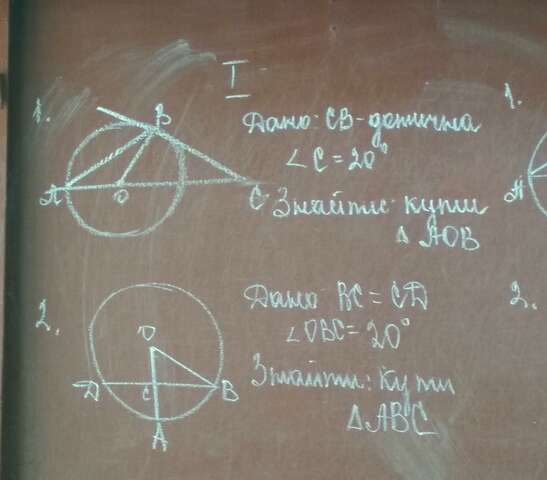 I
1.
B
A
O
C
Дано: CB-дотична
∠C = 20°
Знайти: кути
Δ AOB
1.
A
2.
O
D
C
B
A
Дано: BC = CD
∠OBC = 20°
Знайти: кути
ΔABC
2.